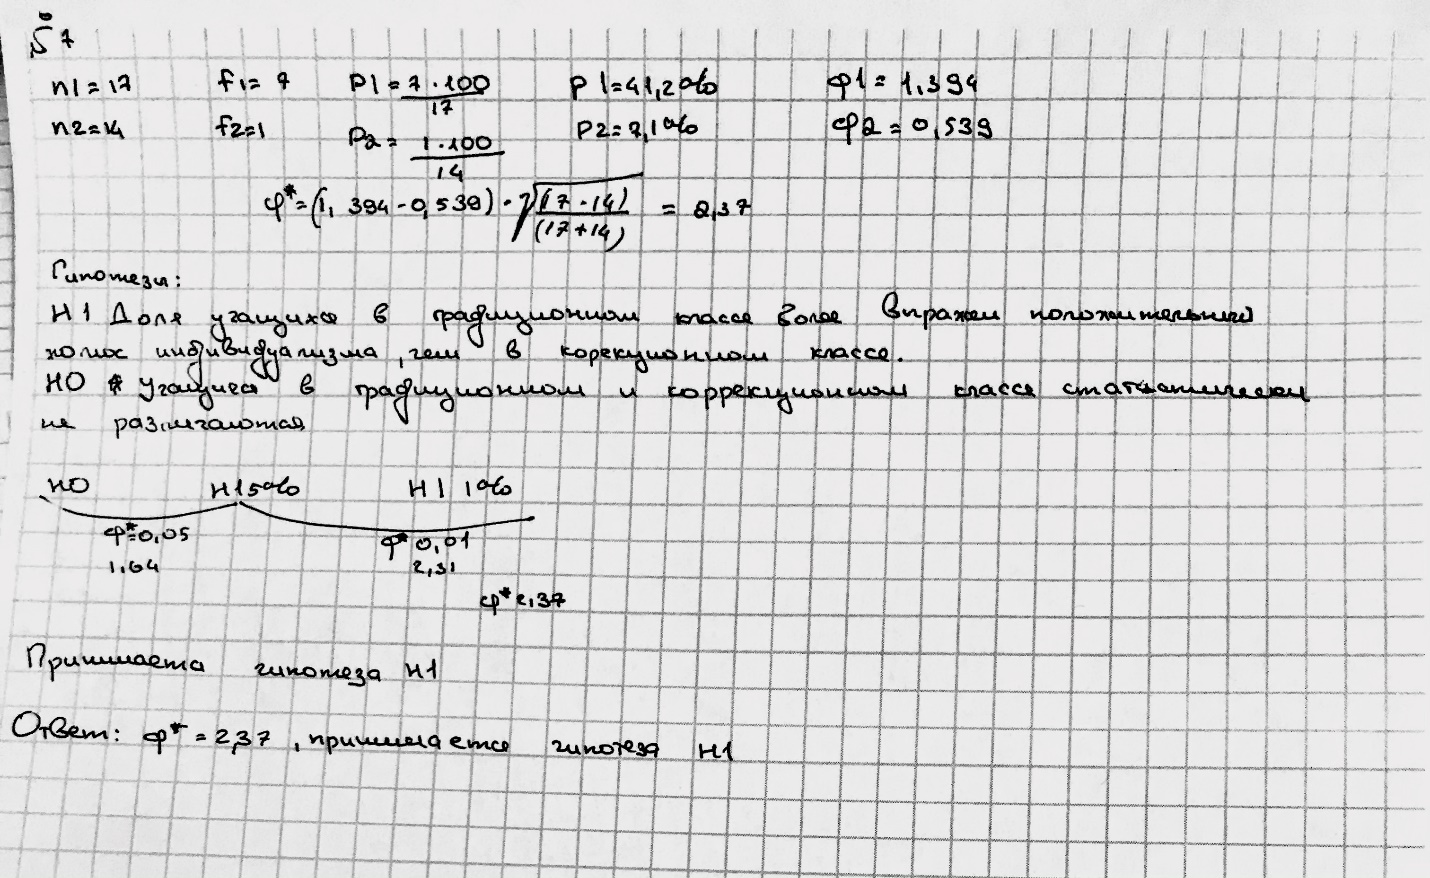 5 7
n1=17 f1=7 P1=7·100/17 P1=41,2% φ1=1,394
n2=14 f2=1 P2=1·100/14 P2=7,1% φ2=0,539
φ*=(1,394-0,539)·√(17·14)/(17+14) = 2,37
Гипотезы:
H1 Доля учащихся в традиционном классе более выражен положительный
полюс индивидуализма, чем в корекционном классе.
H0 Учащиеся в традиционном и коррекционном классе статистически
не различаются
H0 H1 5% H1 1%
φ*=0,05 φ* 0,01
1,64 2,31
φ* 2,37
Принимаета гипотеза H1
Ответ: φ* = 2,37, принимается гипотеза H1